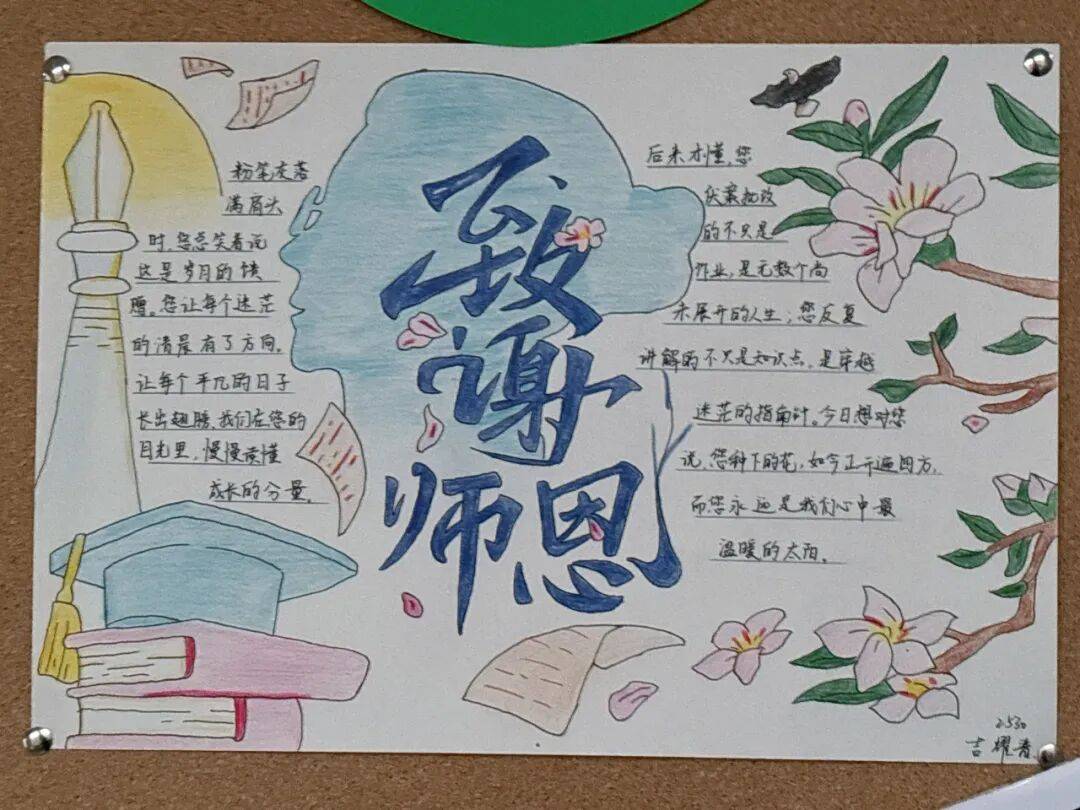 粉笔灰落
满肩头
时，您总笑着说
这是岁月的馈
赠。您让每个迷茫
的清晨有了方向。
让每个平凡的日子
长出翅膀，我们在您的
目光里，慢慢读懂
成长的分量。
致
谢
师恩
后来才懂，您
伏案批改
的不只是
作业，是无数个尚
未展开的人生；您反复
讲解的不只是知识点，是穿越
迷茫的指南针。今日想对您
说，您种下的花，如今正开遍四方，
而您永远是我们心中最
温暖的太阳。
2530
吉耀春